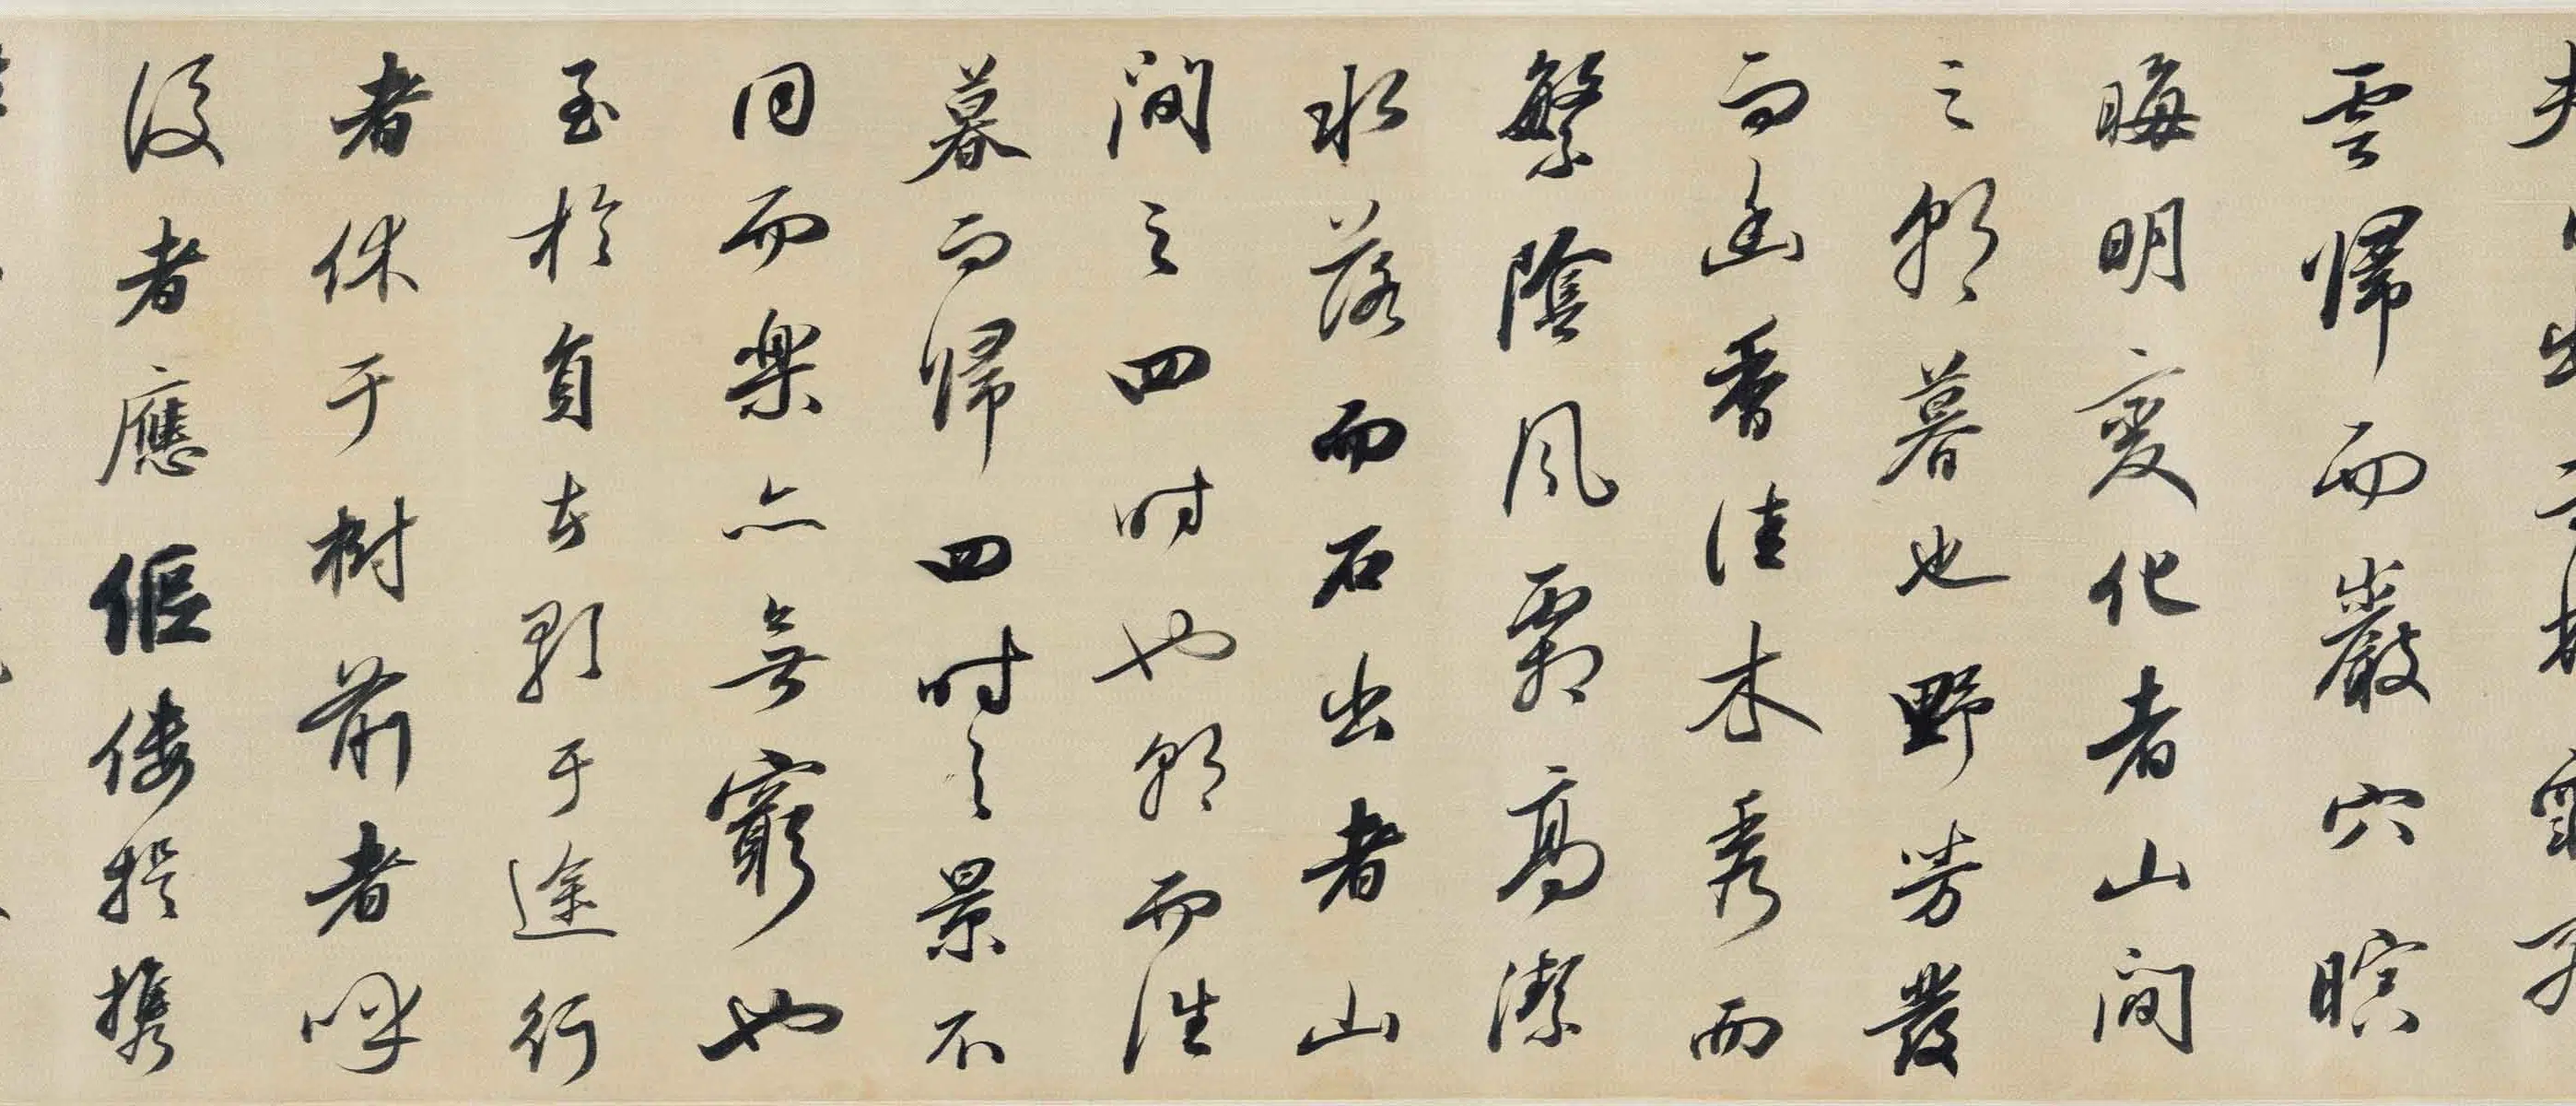 夫日出而林霏開
雲歸而巖穴暝
晦明變化者山間
之朝暮也野芳發
而幽香佳木秀而
繁陰風霜高潔
水落而石出者山
間之四時也朝而往
暮而歸四時之景不
同而樂亦無窮也
至於負者歌于途行
者休于樹前者呼
後者應傴僂提攜